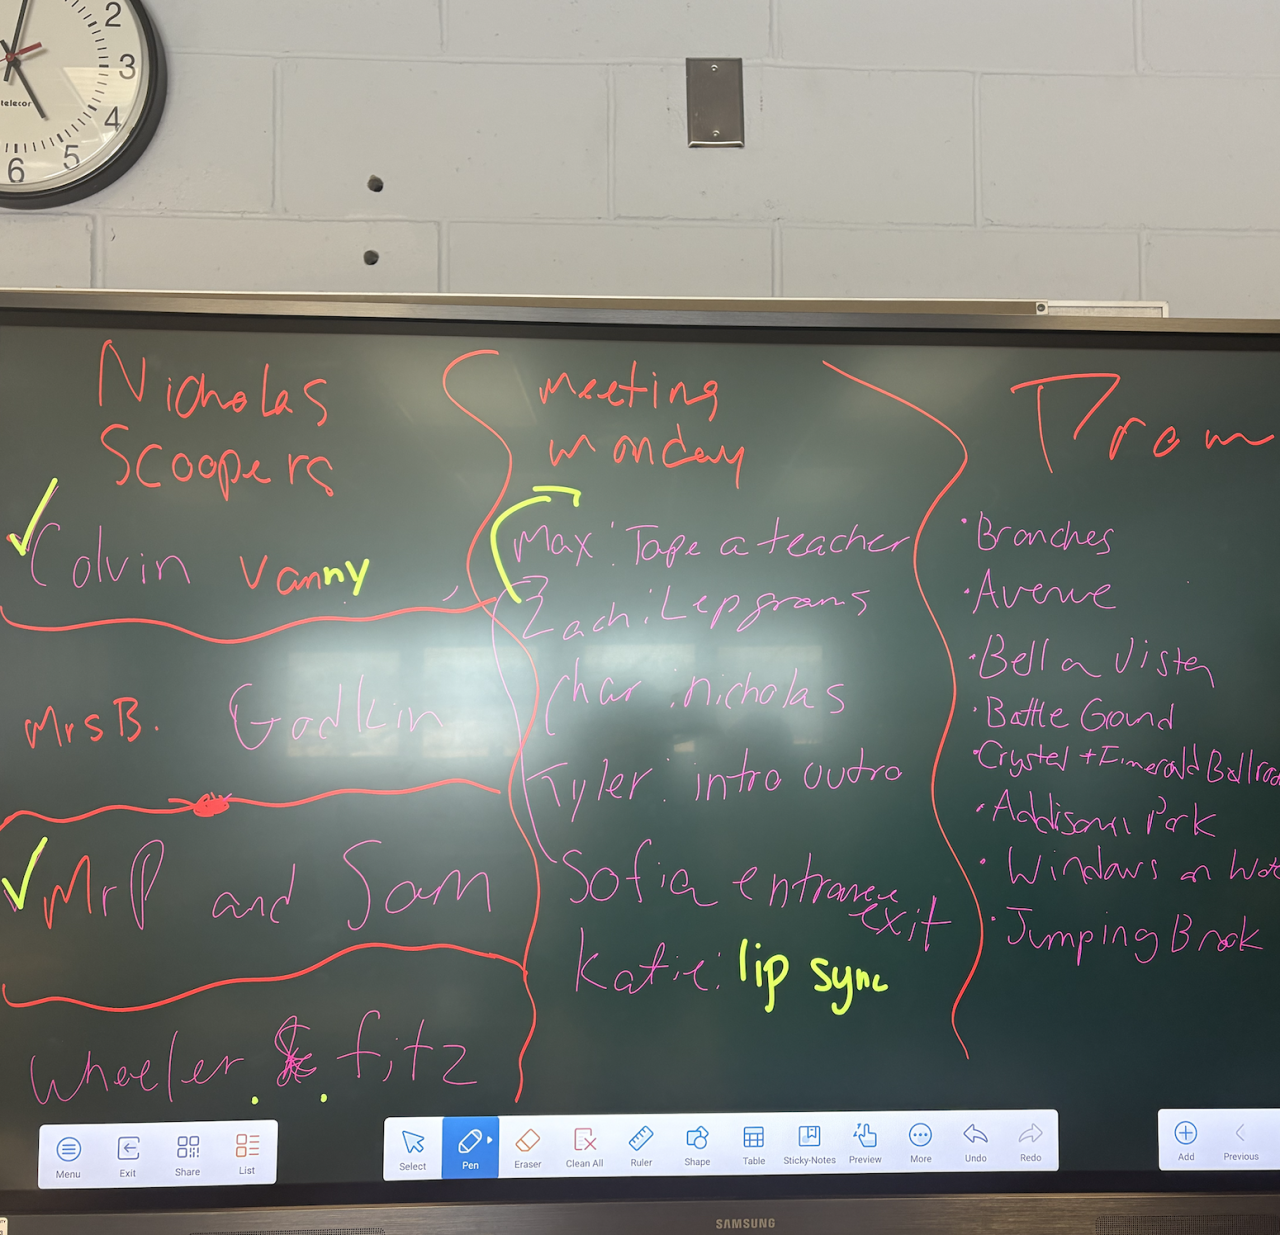 2
3
4
5
6
telecor
Nicholas
Scoopers
Colvin Vanny
Mrs B. Godkin
Mr P and Sam
Wheeler & fitz
meeting
monday
Max: Tape a teacher
Zach: Lep grams
Char: nicholas
Tyler: intro outro
Sofia entrance
exit
Katie: lip sync
Prom
· Branches
· Avenue
· Bella Vista
· Battle Gound
· Crystal + Emerald Ballroo
· Addison Park
· Windows on Wat
· Jumping Brook
Menu
Exit
Share
List
Select
Pen
Eraser
Clean All
Ruler
Shape
Table
Sticky-Notes
Preview
More
Undo
Redo
Add
Previous
SAMSUNG